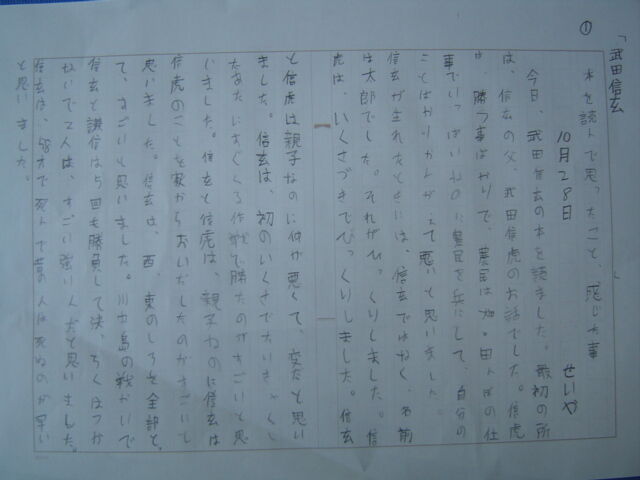 ①
「武田信玄」
本を読んで思ったこと、感じた事
10月28日 せいや
今日、武田信玄の本を読ました。最初の所
は、信玄の父、武田信虎のお話でした。信虎
は、勝つ事ばかりで、農民は畑・田んぼの仕
事でいっぱいなのに農民を兵にして、自分の
ことばかりかんがえて悪いと思いました。
信玄が生れたときには、信玄ではなく、名前
は太郎でした。それがびっくりしました。信
虎は、いくさずきでびっくりしました。信玄
と信虎は親子なのに仲が悪くて、変だと思い
ました。信玄は、初のいくさで大いき
いました。信玄と信虎は、親子なのに信玄は
信虎のことを家からおいだしたのがすごいと
思いました。信玄は、西、東のしろを全部と
て、すごいと思いました。川中島の戦かいで
信玄と謙信は5回も勝負して決ちゃくはつか
ないで2人は、すごい強い人だと思いました。
信玄は、53才で死んで昔の人は死ぬのが早い
と思いました。